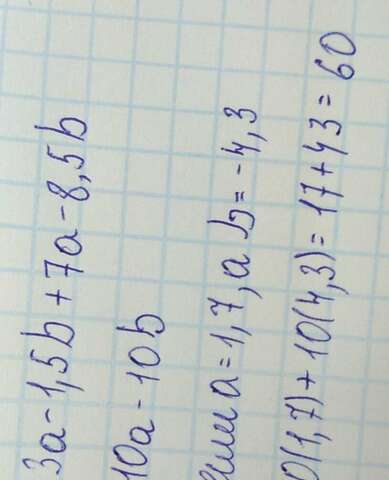 3a-1,5b+7a-8,5b
10a-10b
a=1,7, a b=-4,3
0(1,7)+10(4,3)=17+43=60